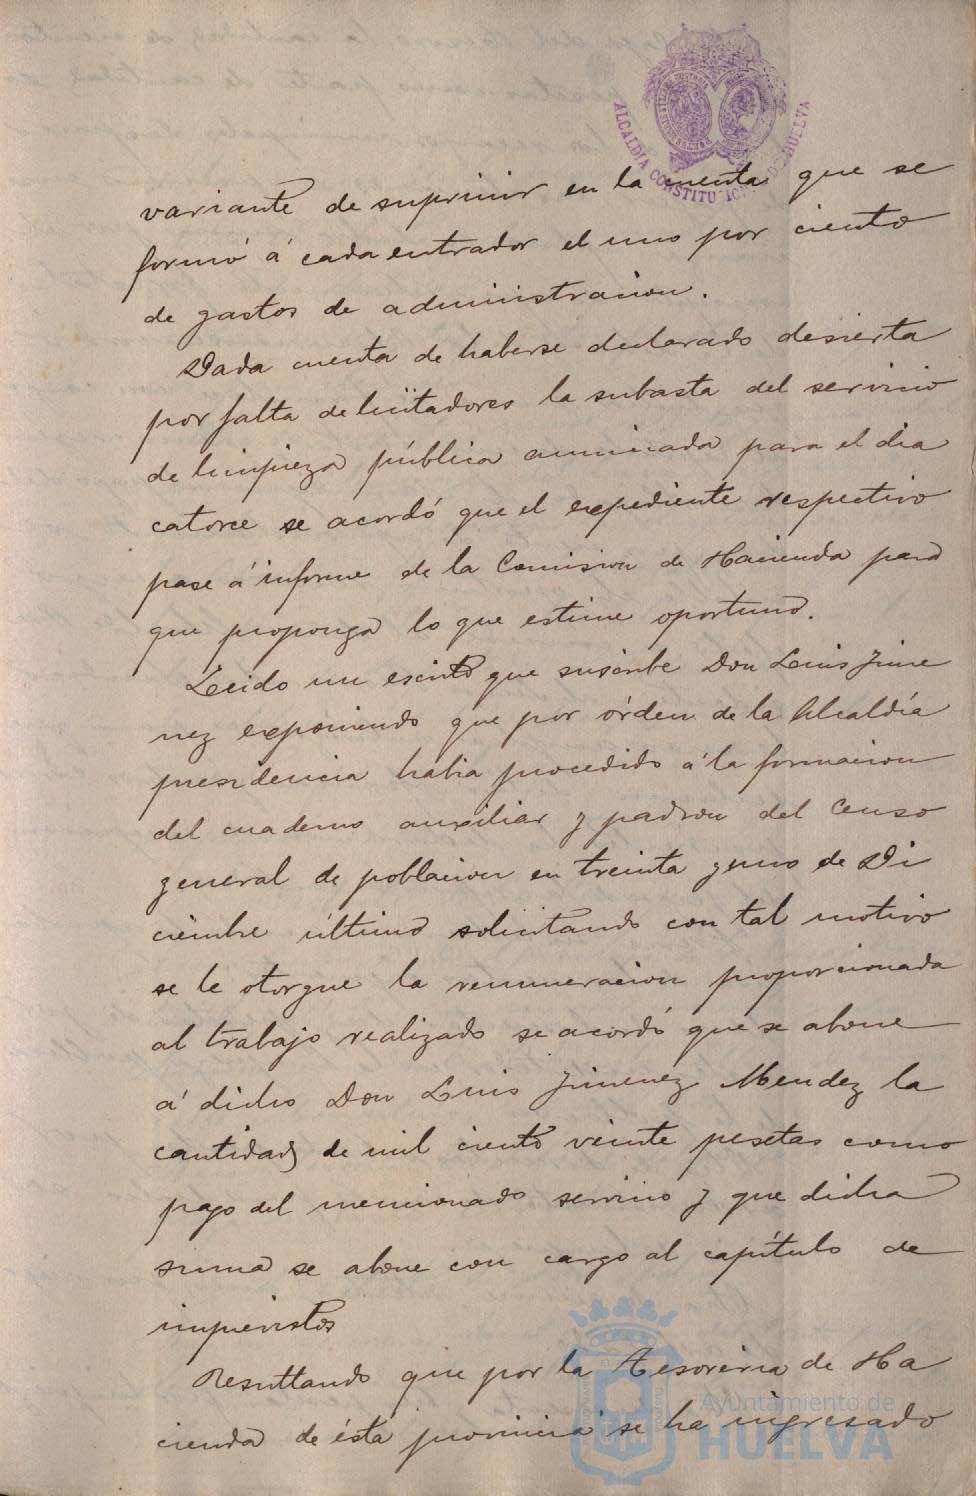 ALCALDIA CONSTITUCIONAL DE HUELVA
variante de suprimir en la cuenta que se
formó á cada entrador el uno por ciento
de gastos de administracion.
Dada cuenta de haberse declarado desierta
por falta de licitadores la subasta del servicio
de limpieza pública anunciada para el dia
catorce se acordó que el expediente respectivo
pase á informe de la Comision de Hacienda para
que proponga lo que estime oportuno.
Leido un escrito que suscribe Don Luis Jime
nez exponiendo que por órden de la Alcaldía
presidencia habia procedido á la formacion
del cuaderno auxiliar y padron del Censo
general de poblacion en treinta y uno de Di
ciembre último solicitando con tal motivo
se le otorgue la remuneracion proporcionada
al trabajo realizado se acordó que se abone
á dicho Don Luis Jimenez Mendez la
cantidad de mil ciento veinte pesetas como
pago del mencionado servicio y que dicha
suma se abone con cargo al capítulo de
imprevistos
Resultando que por la Tesoreria de Ha
cienda de ésta provincia se ha ingresado
Ayuntamiento de
HUELVA